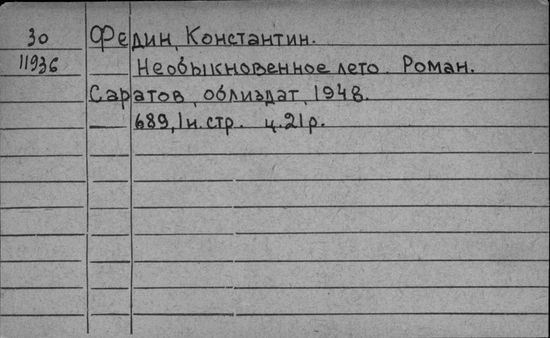 30 Федин, Константин.
11936 Необыкновенное лето. Роман.
Саратов, облиздат, 1948.
689, 1 н. стр. ц. 21 р.